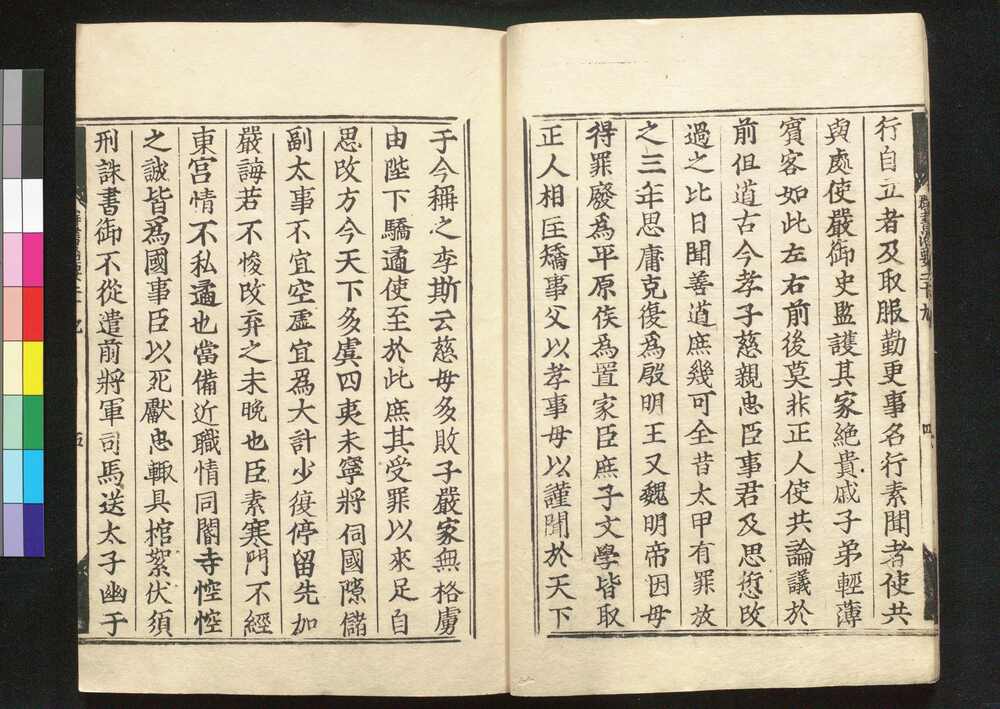 行自立者及取服勤更事名行素聞者使共
與處使嚴御史監護其家絶貴戚子弟輕薄
賓客如此左右前後莫非正人使共論議於
前但道古今孝子慈親忠臣事君及思愆改
過之比日聞善道庶幾可全昔太甲有罪放
之三年思庸克復為殷明王又魏明帝因母
得罪廢為平原侯為置家臣庶子文學皆取
正人相匡矯事父以孝事母以謹聞於天下
于今稱之李斯云慈母多敗子嚴家無格虜
由陛下驕適使至於此庶其受罪以來足自
思改方今天下多虞四夷未寧將伺國隙儲
副太事不宜空虛宜為大計少復停留先加
嚴誨若不悛改弃之未晚也臣素寒門不經
東宮情不私遹也當備近職情同閽寺悾悾
之誠皆為國事臣以死獻忠輙具棺絮伏須
刑誅書御不從遣前將軍司馬送太子幽于
群書治要二十九
四
五